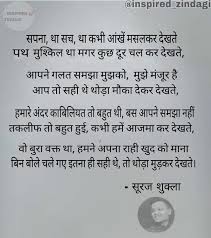 @inspired_zindagi
सपना, था सच, था कभी आंखें मसलकर देखते
पथ मुश्किल था मगर कुछ दूर चल कर देखते,
आपने गलत समझा मुझको, मुझे मंजूर है
आप तो सही थे थोड़ा मौका देकर देखते,
हमारे अंदर काबिलियत तो बहुत थी, बस आपने समझा नहीं
तकलीफ तो बहुत हुई, कभी हमें आजमा कर देखते,
वो बुरा वक्त था, हमने अपना राही खुद को माना
बिन बोले चले गए इतना ही सही थे, तो थोड़ा मुड़कर देखते।
- सूरज शुक्ला